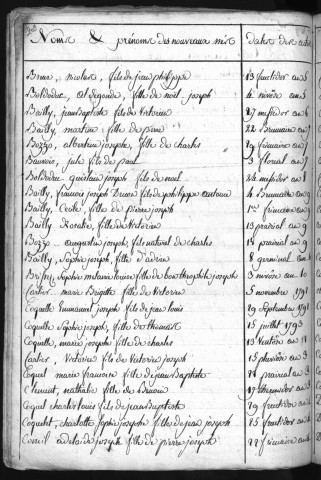 Noms & prénoms des nouveaux nés dates des
Brux, nicolas, fils de jean philippe 13 fructidor an
Boldoduc aldegonde, fille de noël joseph 4 nivôse an
Bailly, jean Baptiste fils de Victorien 27 messidor an
Bailly, martine fille de pierre 22 Brumaire an
Bozzo, albertine josephe, fille de charles 29 frimaire an
fils de paul 3 floreal an
joseph fille de noel 24 messidor an
Bailly, francois joseph fils de philippe antoine 4 Brumaire an
Bailly, Cecile, fille de pierre joseph 1er frimaire an
Bailly Rosalie, fille de Victorien 13 prairial an 9
Bozzo augustin joseph fils naturel de charles 18 prairial an 9
Bailly, Sophie joseph, fille d'adrien 8 germinal an
Sophie melanie louise fille de joseph 3 nivose an 10
Cartier marie Brigitte fille de Victorien 5 novembre 1791
Coquelle Emmanuel joseph fils de jean louis 29 Septembre 1791
Coquelle Sophie joseph, fille de thomas 15 juillet 1793
Coquelle, marie joseph fille de charles 13 Ventôse an 11
Cartier, Victoire fille de Victorien joseph 15 pluviôse an
Coquel marie francoise fille de jean baptiste 28 prairial an
Clement, nathalie fille de Benoit 17 thermidor an
Coquel charles louis fils de jean Baptiste 29 fructidor an
Coquelet, charlotte sophie joseph fille de jean joseph 25 fructidor an
adelaide joseph fille de pierre joseph 22 frimaire an